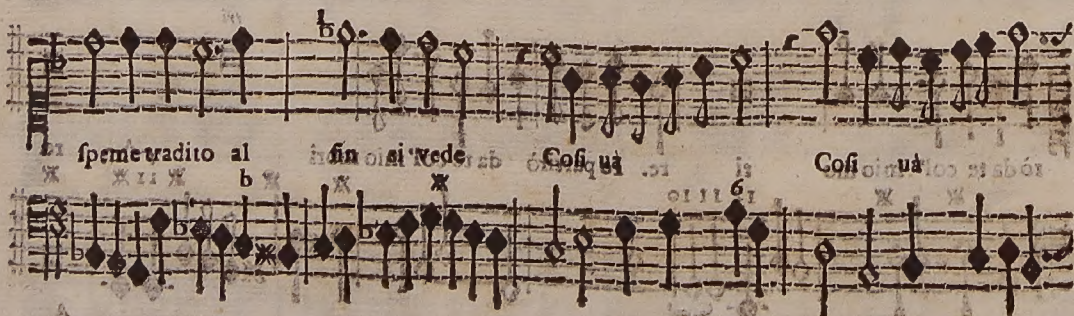 ſpeme tradito al fin ſi vede Coſi uà Coſi uà
b 6